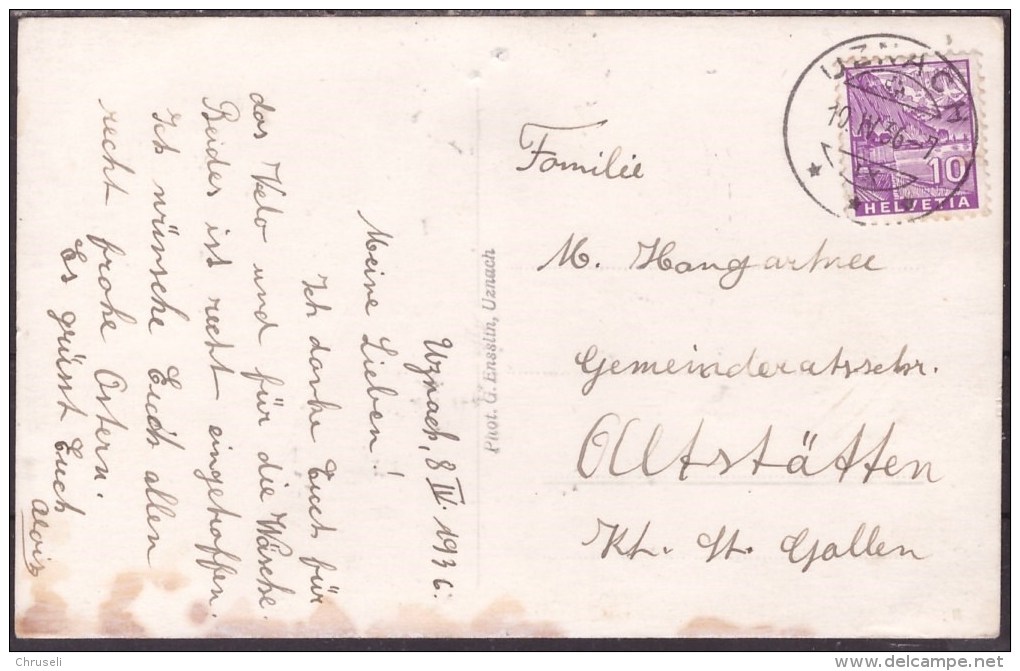 Uznach, 8 IV. 1936.
Meine Lieben!
Ich danke Euch für
das Velo und für die Wäsche.
Beides ist recht eingetroffen.
Ich wünsche Euch allen
recht frohe Ostern.
Es grüsst Euch
Alois
Phot. G. Ensslin, Uznach
UZNACH
10.IV.36-7
10
HELVETIA
Familie
M. Hangartner
Gemeinderatsschr.
Altstätten
Kt. St. Gallen
Chruseli
http://www.delcampe.net